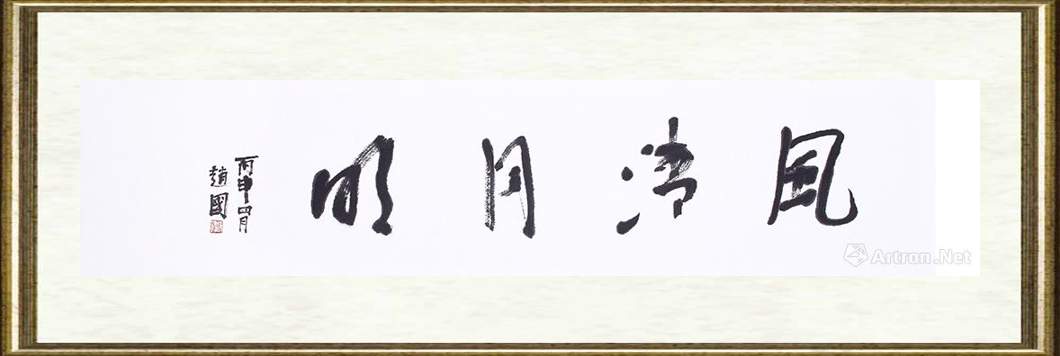 風清月明
丙申四月
趙國
Artron.Net